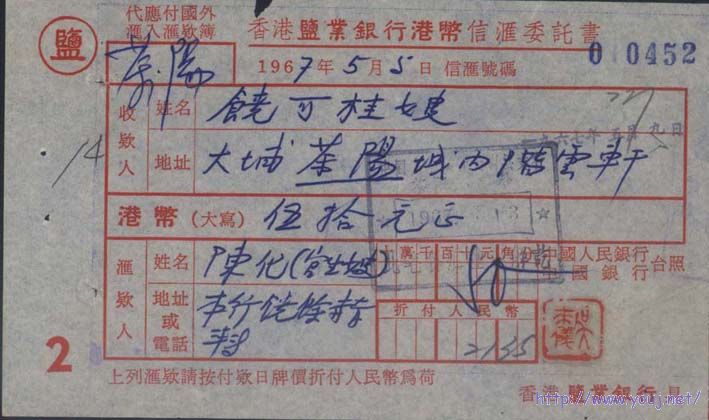 代應付國外
匯入匯欵簿
香港鹽業銀行港幣信匯委託書
鹽
茶陽
1967年5月5日 信匯號碼
0 0452
收欵人
姓名 饒可桂
地址 大埔茶陽城內
港幣(大寫) 伍拾元正
匯欵人
姓名 陳化
地址或電話
十萬千百十元角分
中國人民銀行
中國銀行 台照
折付人民幣
2135
2
上列匯欵請按付欵日牌價折付人民幣爲荷
香港鹽業銀行具
http://www.youj.net/